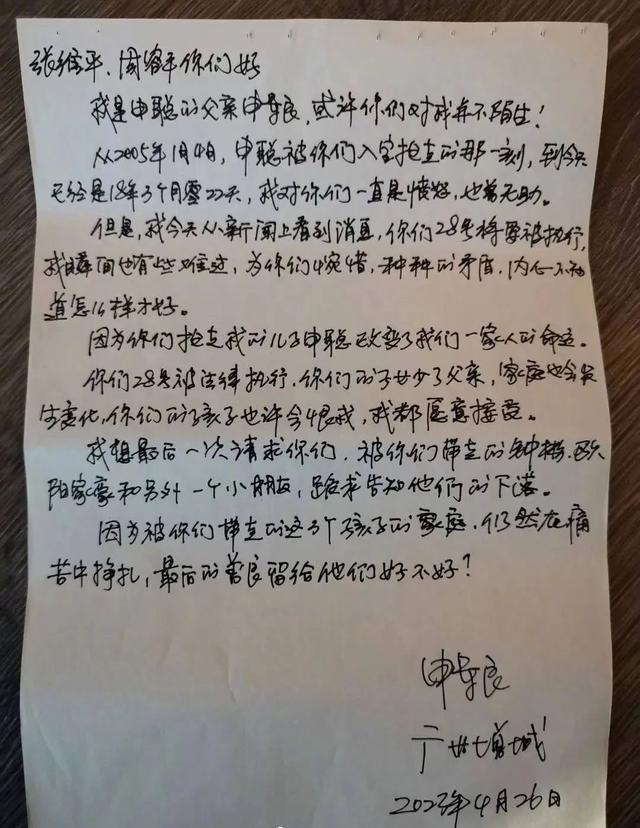 张维平、周容平你们好
我是申聪的父亲申军良，或许你们对我并不陌生！
从2005年1月4日，申聪被你们入室抢走的那一刻，到今天
已经是18年3个月零22天，我对你们一直是愤怒，也着无助。
但是，我今天从新闻上看到消息，你们28号将要被执行，
我瞬间也有些难过，为你们惋惜，种种的矛盾，内心不知
道怎么样才好。
因为你们抢走我的儿子申聪改变了我们一家人的命运。
你们28号被法律执行，你们的子女少了父亲，家庭也会发
生变化，你们的孩子也许会恨我，我都愿意接受。
我想最后一次请求你们，被你们带走的钟彬、欧
阳家豪和另外一个小朋友，跪求告知他们的下落。
因为被你们带走的这3个孩子的家庭，仍然在痛
苦中挣扎，最后的善良留给他们好不好？
申军良
广州增城
2023年4月26日